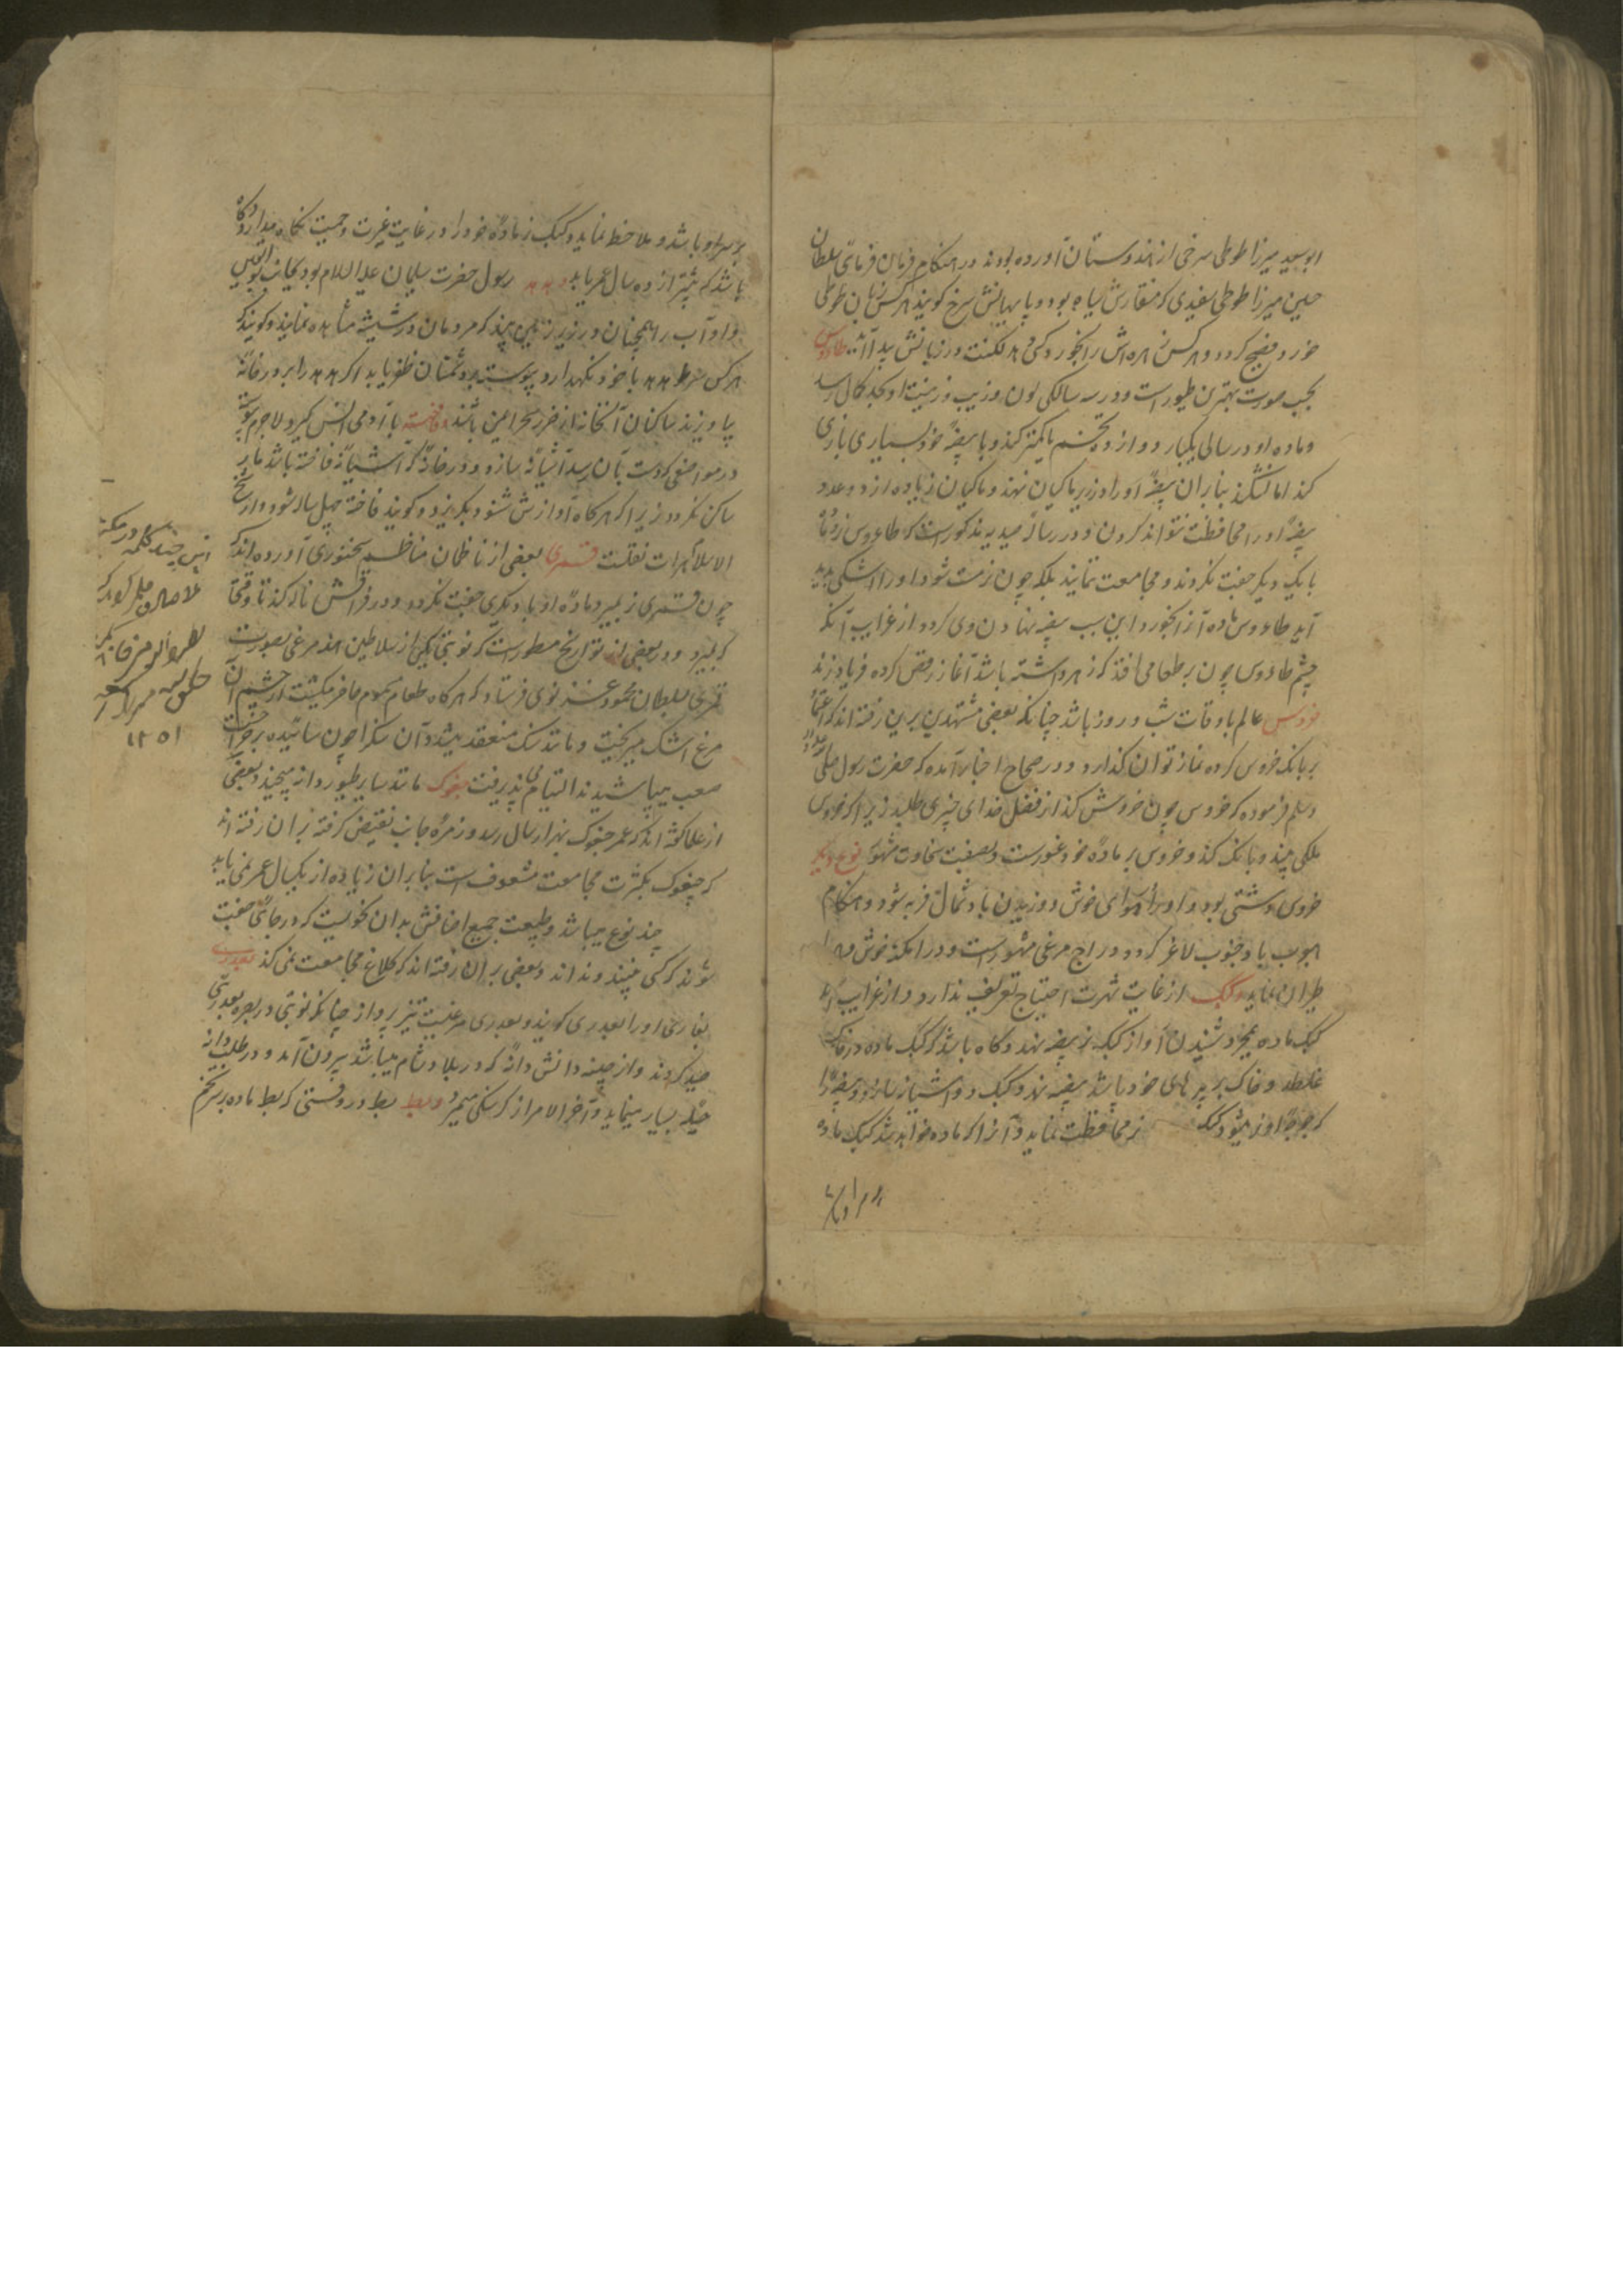 ابوسعید میرزا طوطی سرخی از هندوستان آورده بودند در هنگام فرمان فرمائی سلطان
حسین میرزا طوطی سفیدی که منقارش سیاه بود و پایهایش سرخ گویند هر کس زبان طوطی
خورد فصیح گردد و هر کس زهره‌اش را بخورد لکنت در زبانش پدید آید طاوس
بحسب صورت بهترین طیور است و در سه سالگی لون و زیب و زینت او بحد کمال رسد
و ماده او در سالی یکبار دوازده تخم یا کمتر کند و با بیضهٔ خود بسیاری بازی
کند اما نشکند بنابران بیضهٔ او را در زیر ماکیان نهند و ماکیان زیاده از دو عدد
بیضهٔ او را محافظت نتواند کردن و در رسالهٔ صیدیه مذکور است که طاوس نر و ماده
با یک دیگر جفت نگردند و مجامعت ننمایند بلکه چون نر مست شود او را اشکی پدید
آید طاوس ماده آنرا بخورد و این سبب بیضه نهادن وی گردد از غرایب آنکه
چشم طاوس چون بر طعامی افتد که زهر داشته باشد آغاز رقص کرده فریاد زند
خروس عالم باوقات شب و روز باشد چنانکه بعضی مجتهدین برین رفته‌اند که اعتماد
بر بانک خروس کرده نماز توان گذارد و در صحاح اخبار آمده که حضرت رسول صلی الله علیه
وسلم فرموده که خروس چون خروش کند از فضل خدای چیزی طلبید زیرا که خروس
ملکی بیند و بانک کند و خروس بر مادهٔ خود غیور است و بصفت سخاوت مشهور نوع دیگر
خروس دشتی بود و او بهوای خوش و وزیدن باد شمال فربه شود و هنگام
هبوب باد جنوب لاغر گردد و دراج مرغی مشهور است و در امکنهٔ خوش
طیران نماید و کبک از غایت شهرت احتیاج تعریف ندارد و از غرایب آنکه
کبک ماده بمجرد شنیدن آواز کبک نر بیضه نهد و گاه باشد که کبک ماده در خاک
غلطد و خاک بر پرهای خود پاشد بیضه نهد و کبک دو آشیانه سازد و بیضهٔ را
که جوجهٔ او نر میشود کبک نر محافظت نماید و آنرا که ماده خواهد شد کبک ماده
بر سر او باشد و ملاحظه نماید و کبک نر مادهٔ خود را در غایت غیرت و حمیت نگاه میدارد و گاه
باشد که بیشتر از ده سال عمر یابد هدهد رسول حضرت سلیمان علیه السلام بود بجانب بلقیس
و او آب را همچنان در زیر زمین بیند که مردمان در شیشه مشاهده نمایند و گویند که
هر کس هدهد با خود نگهدارد پیوسته بر دشمنان ظفر یابد اگر هدهد را بر در خانهٔ
بیاویزند ساکنان آنخانه از ضرر سحر ایمن باشند فاخته با آدمی انس گیرد لاجرم پیوسته
در مواضعی که دست بآن رسد آشیانه سازد و در خانهٔ که آشیانهٔ فاخته باشد مار
ساکن نگردد زیرا که هر کاه آوازش شنود بگریزد و گویند فاخته چهل ساله شود و از شیخ
الاسلام هرات نقلست قمری بعضی از ناظمان مناظم سخنوری آورده‌اند که
چون قمری نر بمیرد مادهٔ او با دیگری جفت نگردد و در فراقش ناله کند تا وقتی
که بمیرد و در بعضی از تواریخ مسطور است که نوبتی یکی از سلاطین هند مرغی بصورت
قمری بسلطان محمود غزنوی فرستاد که هر کاه طعام مسموم حاضر میکشت از چشم آن
مرغ اشک میریخت و مانند سنک منعقد میشد و آن سنک را چون سائیده بر جراحت
صعب میپاشیدند التیام می‌پذیرفت چغوک مانند سایر طیور دانه میچیند و بعضی
از علما گفته‌اند که عمر چغوک بهزار سال رسد و زمرهٔ جانب نقیض گرفته بر آن رفته‌اند
که چغوک بکثرت مجامعت مشعوف است بنابران زیاده از یکسال عمر نمی یابد
چند نوع میباشد و طبیعت جمیع اصنافش بدان نحویست که در جائی جفت
شوند که کسی نبیند و نداند و بعضی بر آن رفته‌اند که کلاغ مجامعت نمی کند
بفارسی او را بغدری گویند و بغدری مرغیست تیز پرواز چنانکه نوبتی در بصره بغدری
صید کردند و از چینه دانش دانهٔ که در بلاد شام میباشد بیرون آمد و در طلب دانه
حیلهٔ بسیار مینماید و آخر الامر از گرسنگی میمیرد و بط بط در وقتی که بط ماده بر سر تخم
این چند کلمه در
۱۲۵۱